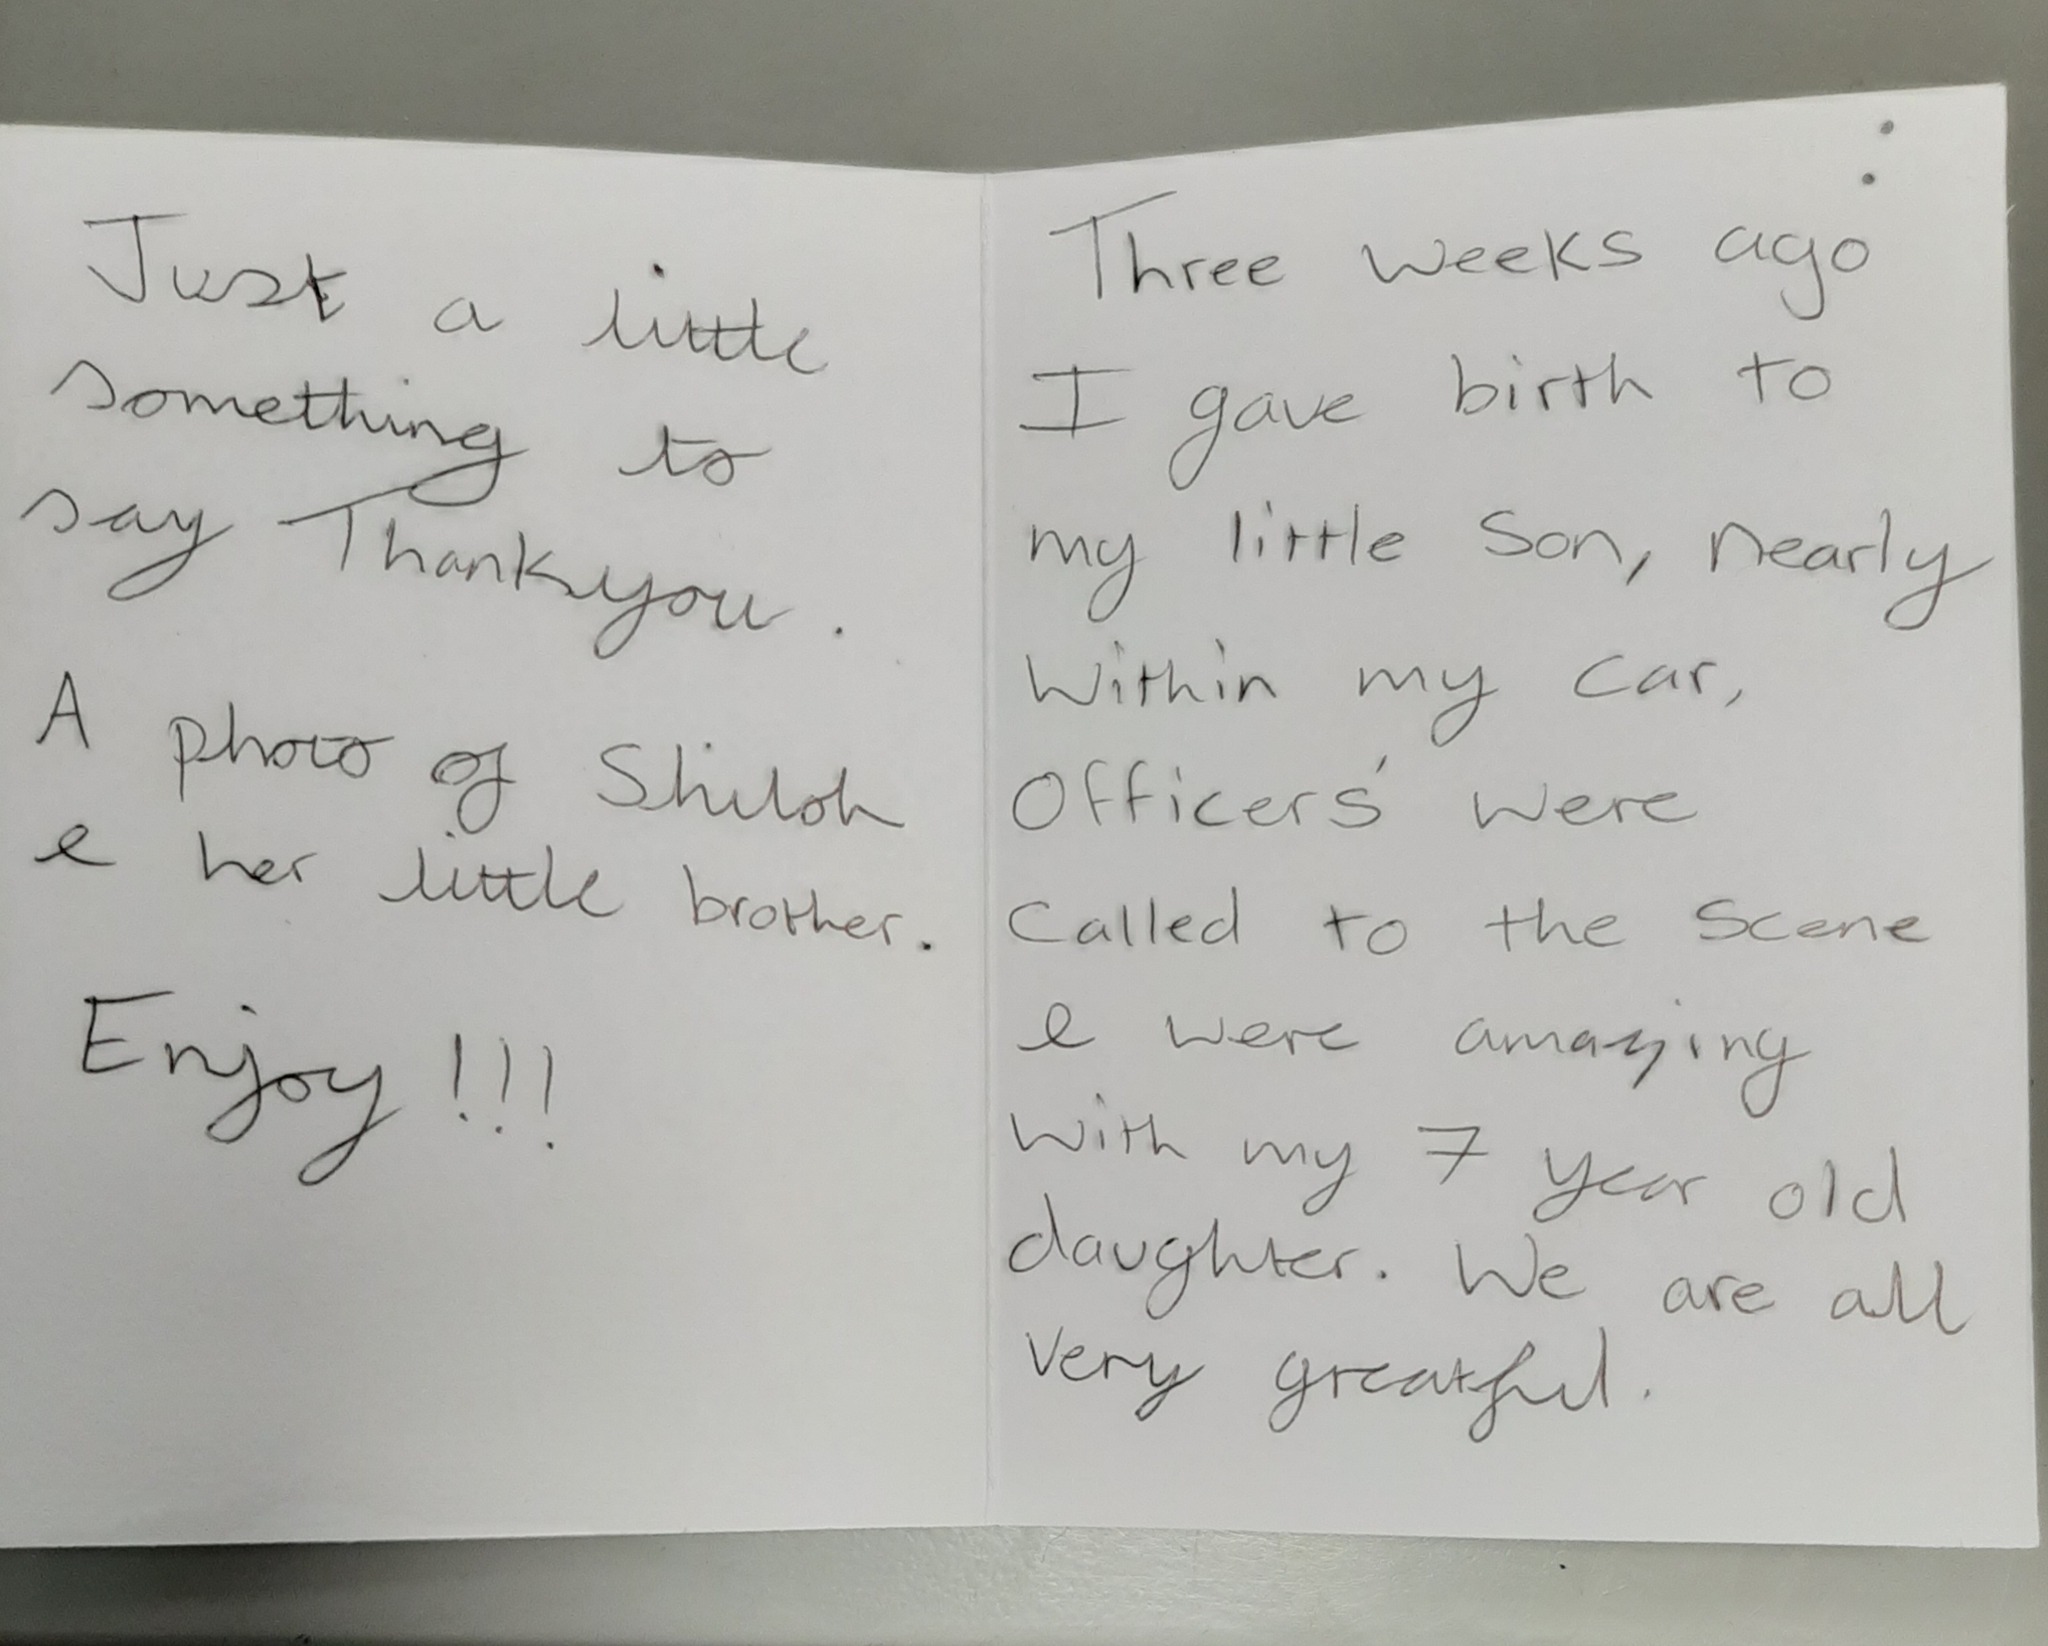 Just a little
something to
say Thankyou.
A photo of Shiloh
& her little brother.
Enjoy!!!
Three weeks ago
I gave birth to
my little son, nearly
within my car,
Officers' were
called to the scene
& were amazing
with my 7 year old
daughter. We are all
very greatful.